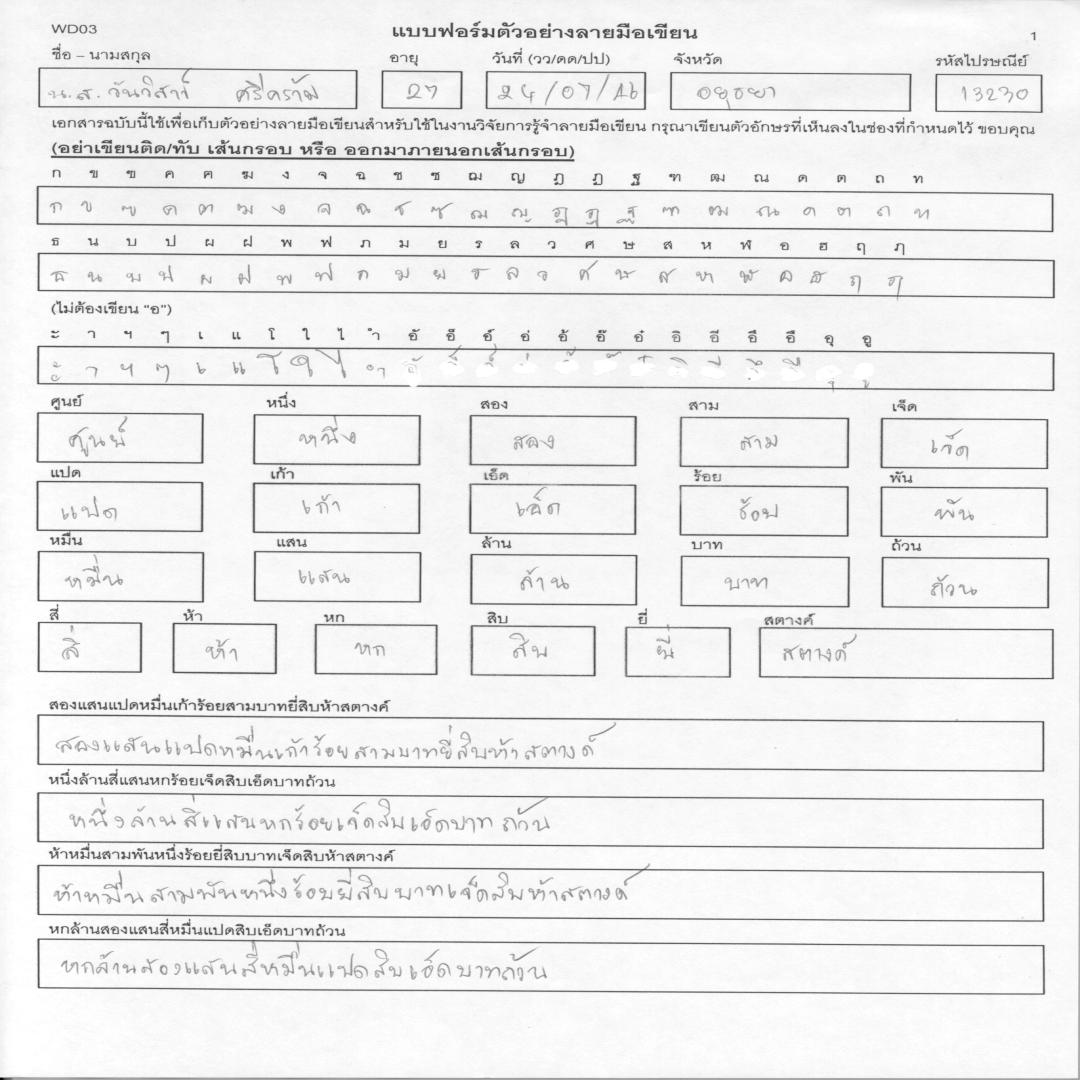 WD03 แบบฟอร์มตัวอย่างลายมือเขียน 1
ชื่อ – นามสกุล อายุ วันที่ (วว/ดด/ปป) จังหวัด รหัสไปรษณีย์
น.ส. วันวิสาข์ ศรีคราม 27 24/07/46 อยุธยา 13230
เอกสารฉบับนี้ใช้เพื่อเก็บตัวอย่างลายมือเขียนสำหรับใช้ในงานวิจัยการรู้จำลายมือเขียน กรุณาเขียนตัวอักษรที่เห็นลงในช่องที่กำหนดไว้ ขอบคุณ
(อย่าเขียนติด/ทับ เส้นกรอบ หรือ ออกมาภายนอกเส้นกรอบ)
ก ข ฃ ค ฅ ฆ ง จ ฉ ช ซ ฌ ญ ฎ ฏ ฐ ฑ ฒ ณ ด ต ถ ท
ก ข ฃ ค ฅ ฆ ง จ ฉ ช ซ ฌ ญ ฎ ฏ ฐ ฑ ฒ ณ ด ต ถ ท
ธ น บ ป ผ ฝ พ ฟ ภ ม ย ร ล ว ศ ษ ส ห ฬ อ ฮ ฤ ฦ
ธ น บ ป ผ ฝ พ ฟ ภ ม ย ร ล ว ศ ษ ส ห ฬ อ ฮ ฤ ฦ
(ไม่ต้องเขียน “อ”)
ะ า ฯ ๆ เ แ โ ใ ไ ำ อั อ็ อ์ อ่ อ้ อ๊ อ๋ อิ อี อึ อื อุ อู
ะ า ฯ ๆ เ แ โ ใ ไ ำ ั ็ ์ ่ ้ ๊ ๋ ิ ี ึ ื ุ ู
ศูนย์ หนึ่ง สอง สาม เจ็ด
ศูนย์ หนึ่ง สอง สาม เจ็ด
แปด เก้า เอ็ด ร้อย พัน
แปด เก้า เอ็ด ร้อย พัน
หมื่น แสน ล้าน บาท ถ้วน
หมื่น แสน ล้าน บาท ถ้วน
สี่ ห้า หก สิบ ยี่ สตางค์
สี่ ห้า หก สิบ ยี่ สตางค์
สองแสนแปดหมื่นเก้าร้อยสามบาทยี่สิบห้าสตางค์
สองแสนแปดหมื่นเก้าร้อยสามบาทยี่สิบห้าสตางค์
หนึ่งล้านสี่แสนหกร้อยเจ็ดสิบเอ็ดบาทถ้วน
หนึ่งล้านสี่แสนหกร้อยเจ็ดสิบเอ็ดบาทถ้วน
ห้าหมื่นสามพันหนึ่งร้อยยี่สิบบาทเจ็ดสิบห้าสตางค์
ห้าหมื่นสามพันหนึ่งร้อยยี่สิบบาทเจ็ดสิบห้าสตางค์
หกล้านสองแสนสี่หมื่นแปดสิบเอ็ดบาทถ้วน
หกล้านสองแสนสี่หมื่นแปดสิบเอ็ดบาทถ้วน